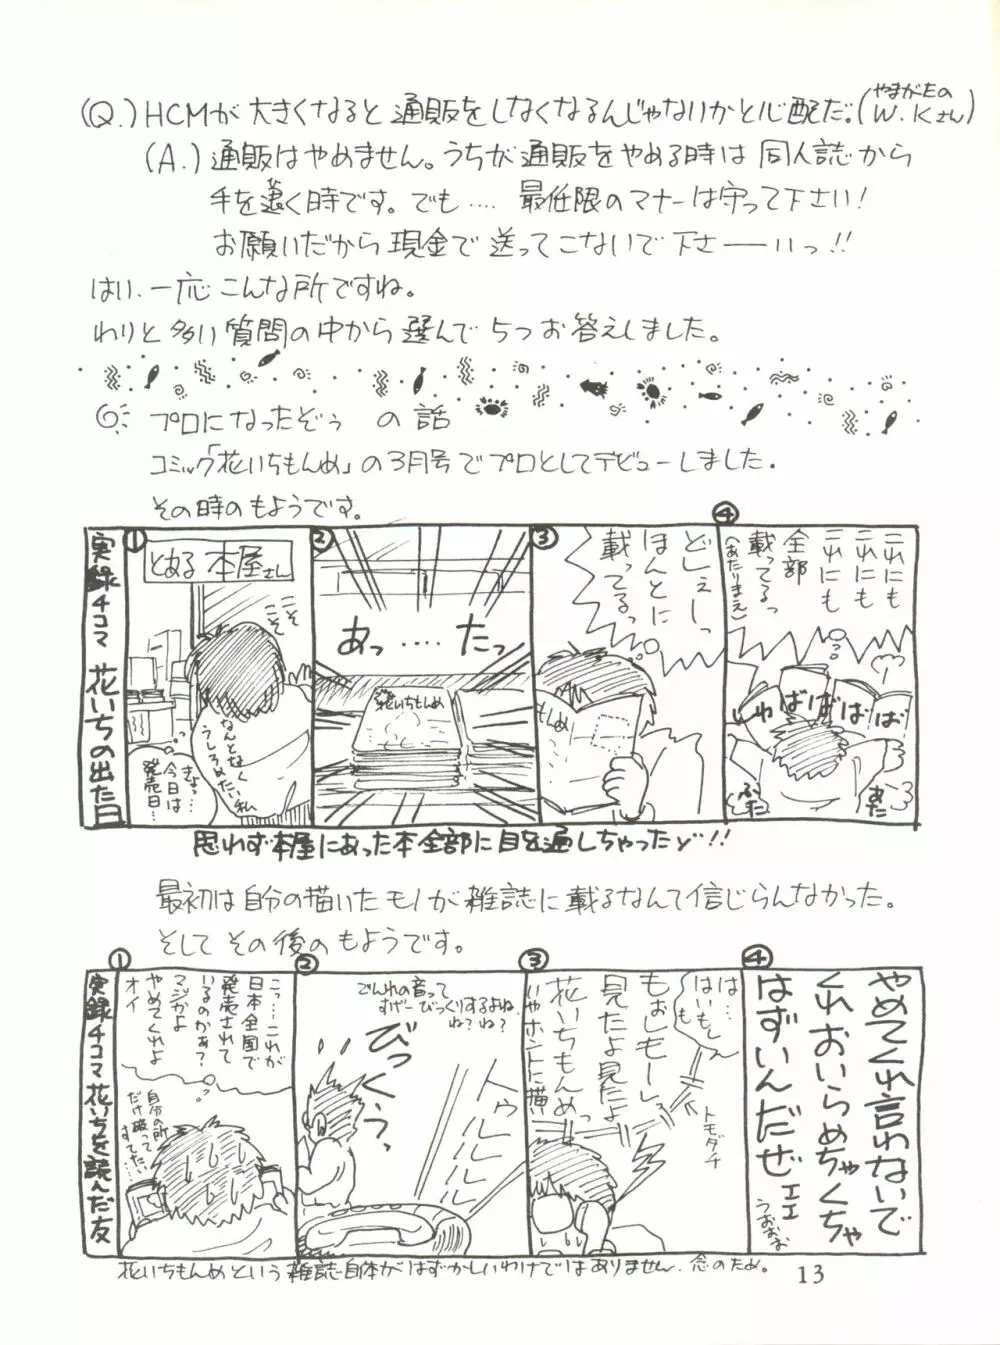 (Q.) HCMが大きくなると通販をしなくなるんじゃないかと心配だ。(やまがたのW.Kさん)
(A.) 通販はやめません。うちが通販をやめる時は同人誌から
手を退く時です。でも‥‥最低限のマナーは守って下さい!
お願いだから現金で送ってこないで下さーーいっ!!
はい、一応こんな所ですね。
わりと多い質問の中から選んで5つお答えしました。
◎ プロになったぞぅ の話
コミック「花いちもんめ」の3月号でプロとしてデビューしました。
その時のもようです。
実録4コマ 花いちの出た日
①
とある本屋さん
こそ
こそ
なんとなく
うしろめたい私
きょ…
今日は
発売日…
②
あっ‥‥たっ
花いちもんめ
③
どしぇーっ
ほんとに
載ってるっ
もんめ
④
これにも
これにも
これにも
全部
載ってるっ
(あたりまえ)
しゅばばばばば
あたふた
思わず本屋にあった本全部に目を通しちゃったy!!
最初は自分の描いたモノが雑誌に載るなんて信じらんなかった。
そしてその後のもようです。
実録4コマ 花いちを読んだ友
①
こっ…これが
日本全国で
発売されて
いるのかぁ?
マジかよ
やめてくれよ
オイ
自分の所
だけ破って
すてたい…
②
でんわの音って
すげーびっくりするよね
ね?ね?
びっくぅっ
トゥルルルル
③
は…
はいもしもし
もぉしもーしっ
見たよ見たよ
花いちもんめっ
いやホントに描い
トモダチ
④
やめてくれ言わないで
くれおいらめちゃくちゃ
はずいんだぜェェ
うおおお
花いちもんめという雑誌自体がはずかしいわけではありません。念のため。
13